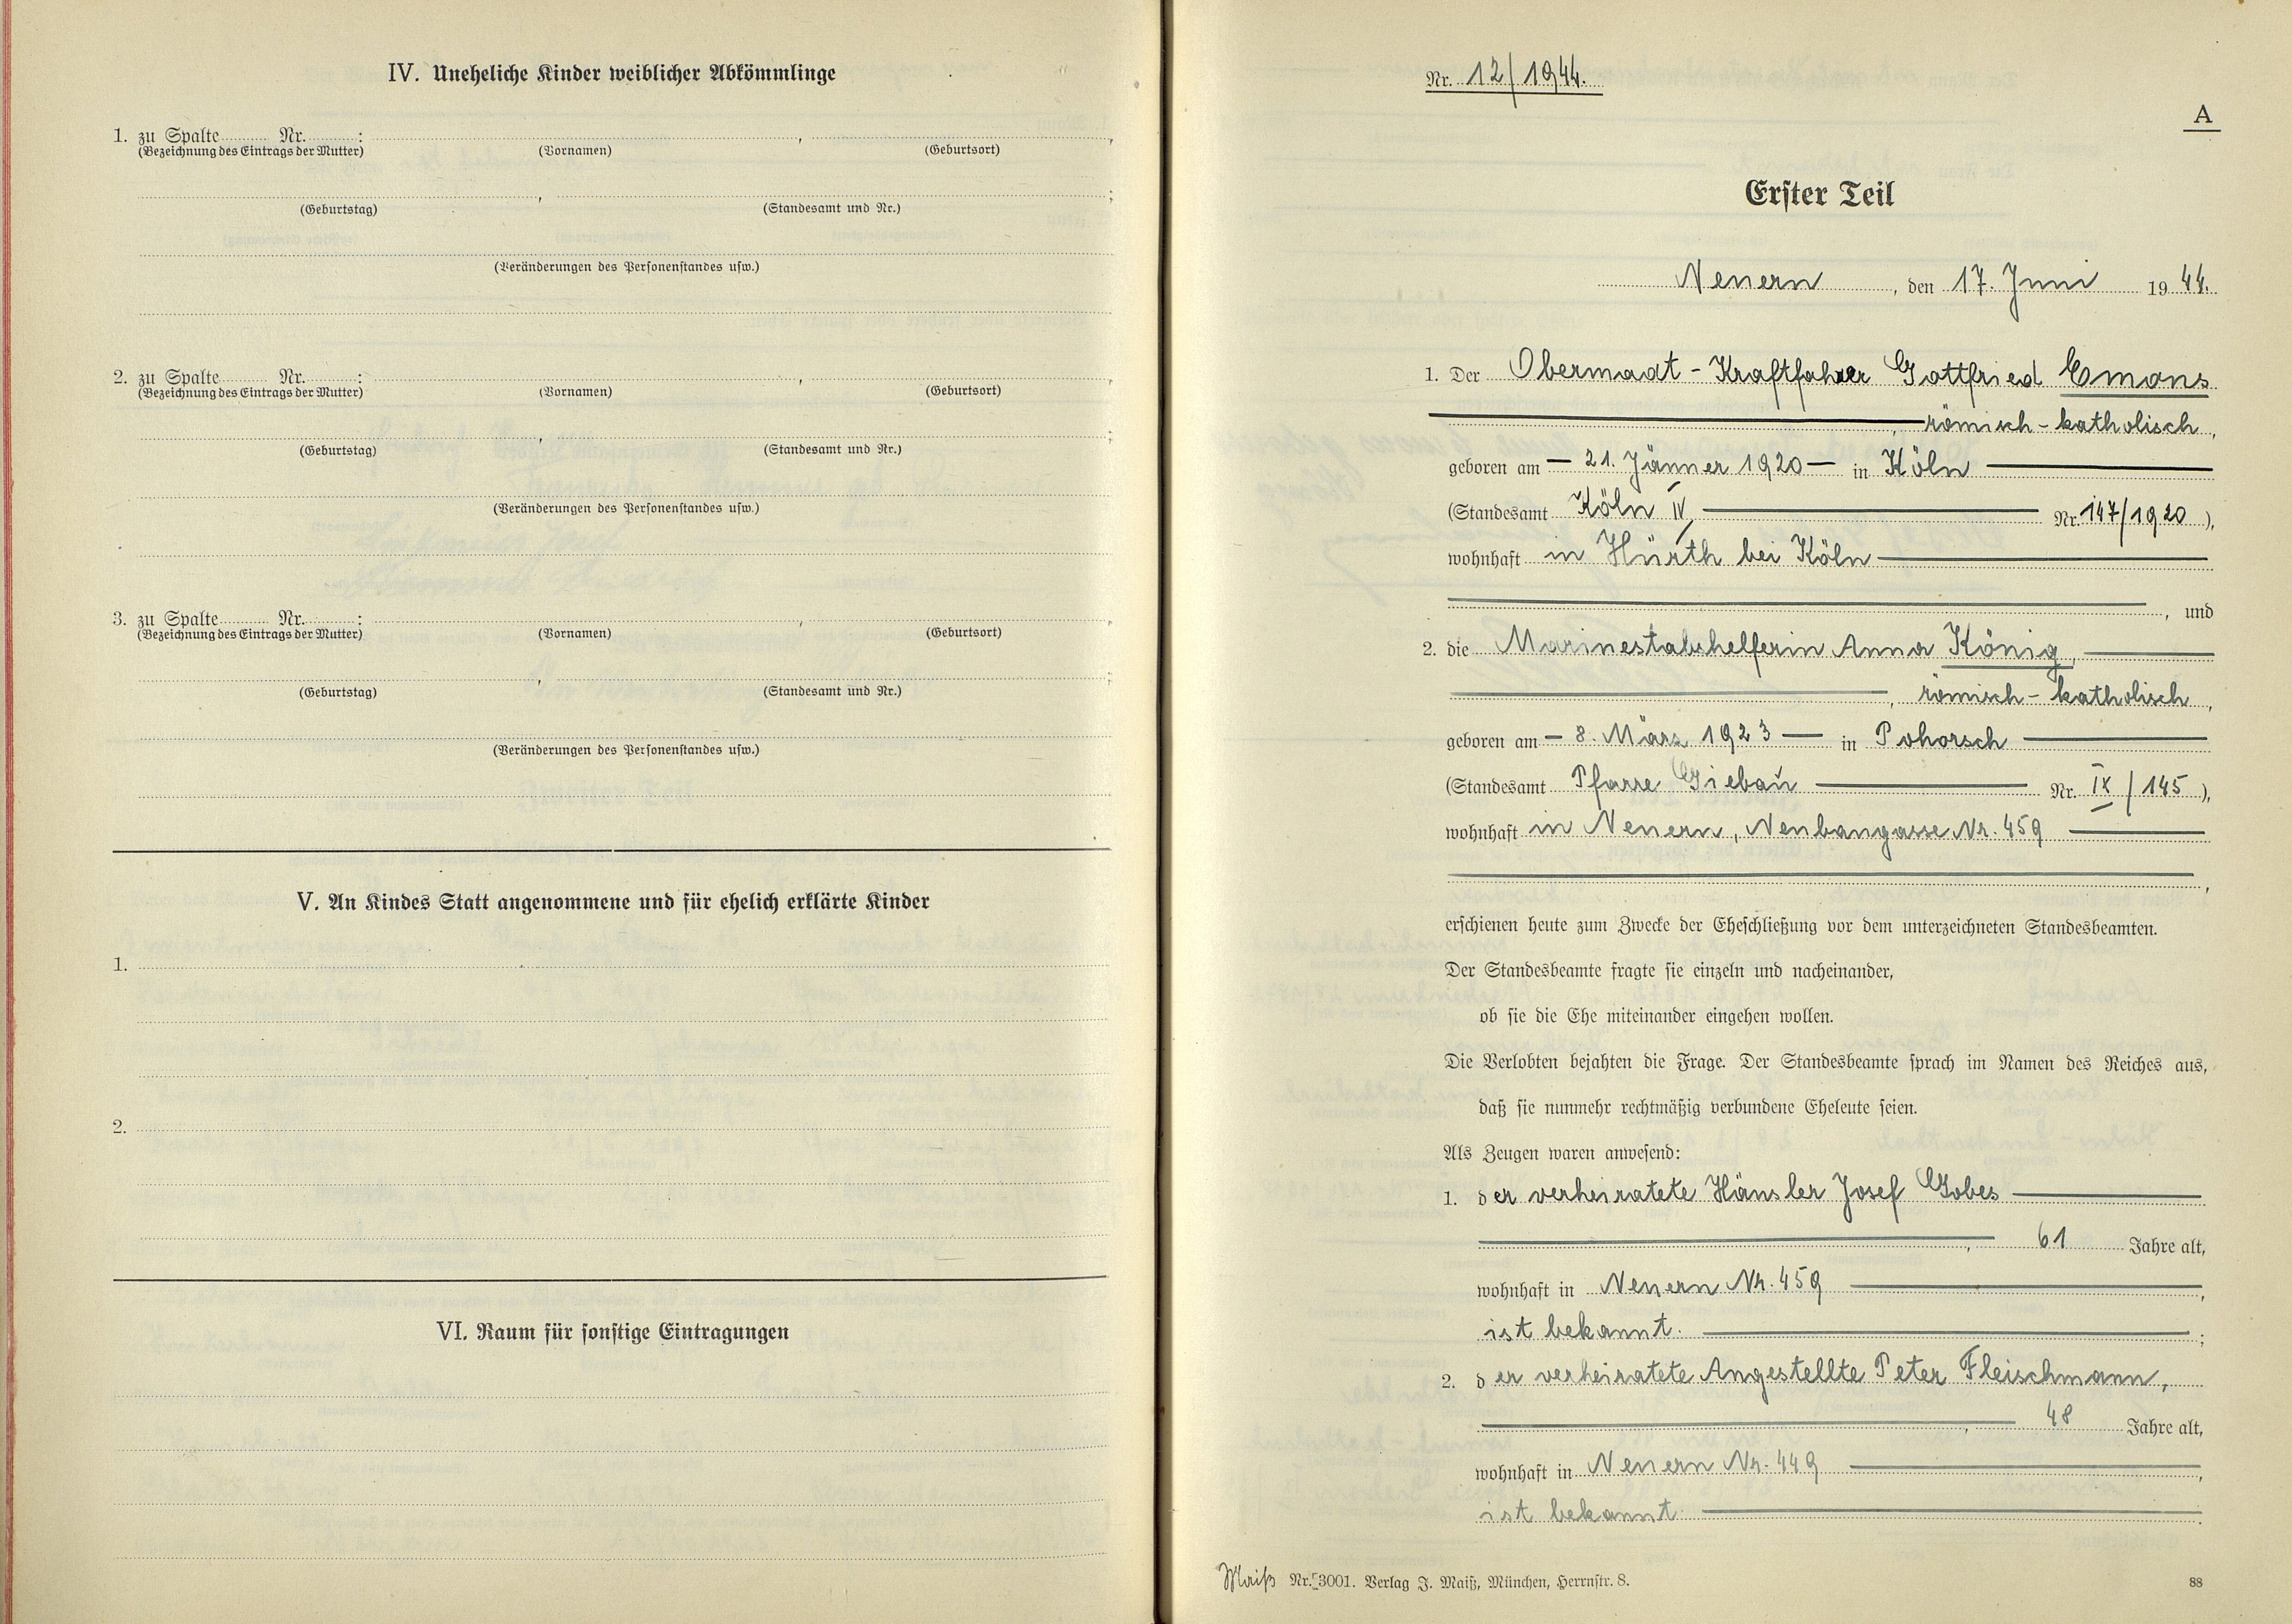 IV. Uneheliche Kinder weiblicher Abkömmlinge
1. zu Spalte Nr. : , ,
(Bezeichnung des Eintrags der Mutter) (Vornamen) (Geburtsort)
, ;
(Geburtstag) (Standesamt und Nr.)
(Veränderungen des Personenstandes usw.)
2. zu Spalte Nr. : , ,
(Bezeichnung des Eintrags der Mutter) (Vornamen) (Geburtsort)
, ;
(Geburtstag) (Standesamt und Nr.)
(Veränderungen des Personenstandes usw.)
3. zu Spalte Nr. : , ,
(Bezeichnung des Eintrags der Mutter) (Vornamen) (Geburtsort)
, ;
(Geburtstag) (Standesamt und Nr.)
(Veränderungen des Personenstandes usw.)
V. An Kindes Statt angenommene und für ehelich erklärte Kinder
1.
2.
VI. Raum für sonstige Eintragungen
Nr. 12/1944.
A
Erster Teil
Neuern, den 17. Juni 1944.
1. Der Obermaat-Kraftfahrer Gottfried Emans
, römisch-katholisch,
geboren am – 21. Jänner 1920 – in Köln
(Standesamt Köln IV, Nr. 147/1920),
wohnhaft in Hürth bei Köln
, und
2. die Marinestabshelferin Anna König,
, römisch-katholisch,
geboren am – 8. März 1923 – in Pohorsch
(Standesamt Pfarre Giebau Nr. IX/145),
wohnhaft in Neuern, Neubaugasse Nr. 459
,
erschienen heute zum Zwecke der Eheschließung vor dem unterzeichneten Standesbeamten.
Der Standesbeamte fragte sie einzeln und nacheinander,
ob sie die Ehe miteinander eingehen wollen.
Die Verlobten bejahten die Frage. Der Standesbeamte sprach im Namen des Reiches aus,
daß sie nunmehr rechtmäßig verbundene Eheleute seien.
Als Zeugen waren anwesend:
1. der verheiratete Häusler Josef Gobes
, 61 Jahre alt,
wohnhaft in Neuern Nr. 459,
ist bekannt. ;
2. der verheiratete Angestellte Peter Fleischmann,
, 48 Jahre alt,
wohnhaft in Neuern Nr. 449,
ist bekannt.
Maiß Nr. 3001. Verlag J. Maiß, München, Herrnstr. 8.
88